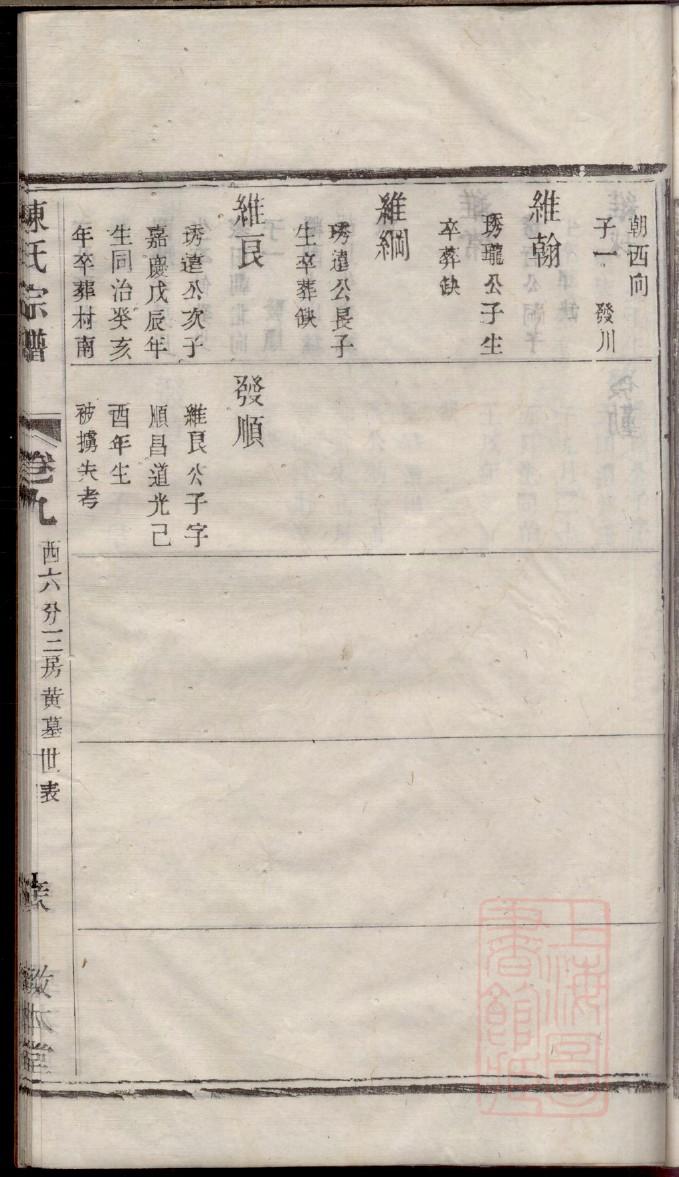 朝西向
子一　發川
維翰
琇瓏公子生
卒葬缺
維綱
琇遠公長子
生卒葬缺
維艮
琇遠公次子
嘉慶戊辰年
生同治癸亥
年卒葬村南
發順
維艮公子字
順昌道光己
酉年生
被擄失考
陳氏宗譜
卷九
西六分三房黃墓世表
敬本堂
上海圖書館藏